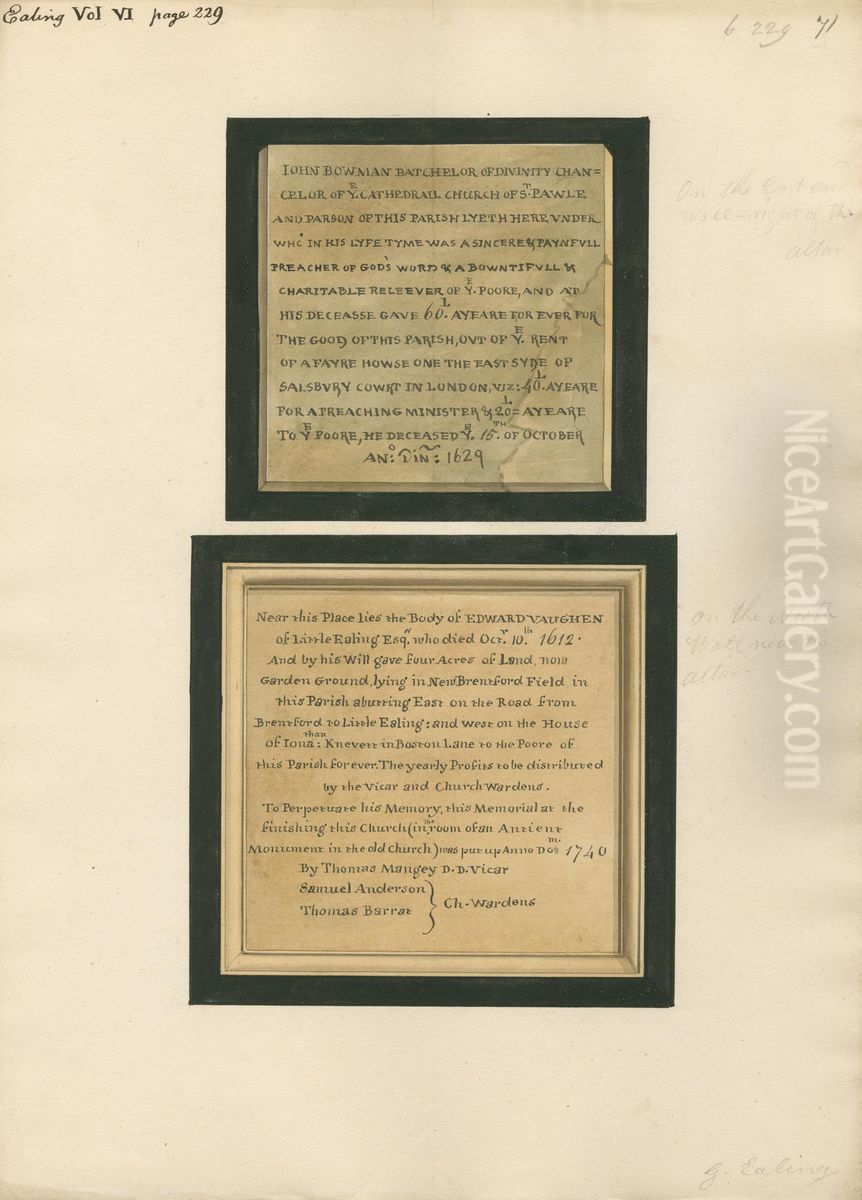 Ealing Vol VI page 229
6 229 71
IOHN BOWMAN BATCHELOR OF DIVINITY CHAN=
CELOR OF Y.E CATHEDRALL CHURCH OF S.T PAWLE
AND PARSON OF THIS PARISH LYETH HERE VNDER
WHC IN HIS LYFE TYME WAS A SINCERE & PAYNFVLL
PREACHER OF GOD'S WORD & A BOWNTIFVLL &
CHARITABLE RELEEVER OF Y.E POORE, AND AT
HIS DECEASSE GAVE 60.L AYEARE FOR EVER FOR
THE GOOD OF THIS PARISH, OVT OF Y.E RENT
OF A FAYRE HOWSE ONE THE EAST SYDE OF
SALSBVRY COWRT IN LONDON, VIZ: 40.L AYEARE
FOR A PREACHING MINISTER & 20=L AYEARE
TO Y.E POORE, HE DECEASED Y.E 15.TH OF OCTOBER
AN:o DiNi: 1629
On the East end
wall - right of the
altar
Near this Place lies the Body of EDWARD VAUGHEN
of Little Ealing Esqr. who died Octr. 10th. 1612.
And by his Will gave four Acres of Land, now
Garden Ground, lying in New Brentford Field in
this Parish abutting East on the Road from
Brentford to Little Ealing: and West on the House
of Iona:than Knevett in Boston Lane to the Poore of
this Parish for ever. The yearly Profits to be distributed
by the Vicar and Church Wardens.
To Perpetuate his Memory, this Memorial at the
finishing this Church (in the room of an Antient
Monument in the old Church) was put up Anno Dom. 1740
By Thomas Mangey D.D. Vicar
Samuel Anderson
Thomas Barrat } Ch. Wardens
on the
Wall near the
altar
G. Ealing
NiceArtGallery.com